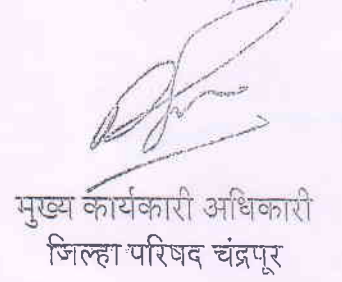 मुख्य कार्यकारी अधिकारी
जिल्हा परिषद चंद्रपूर